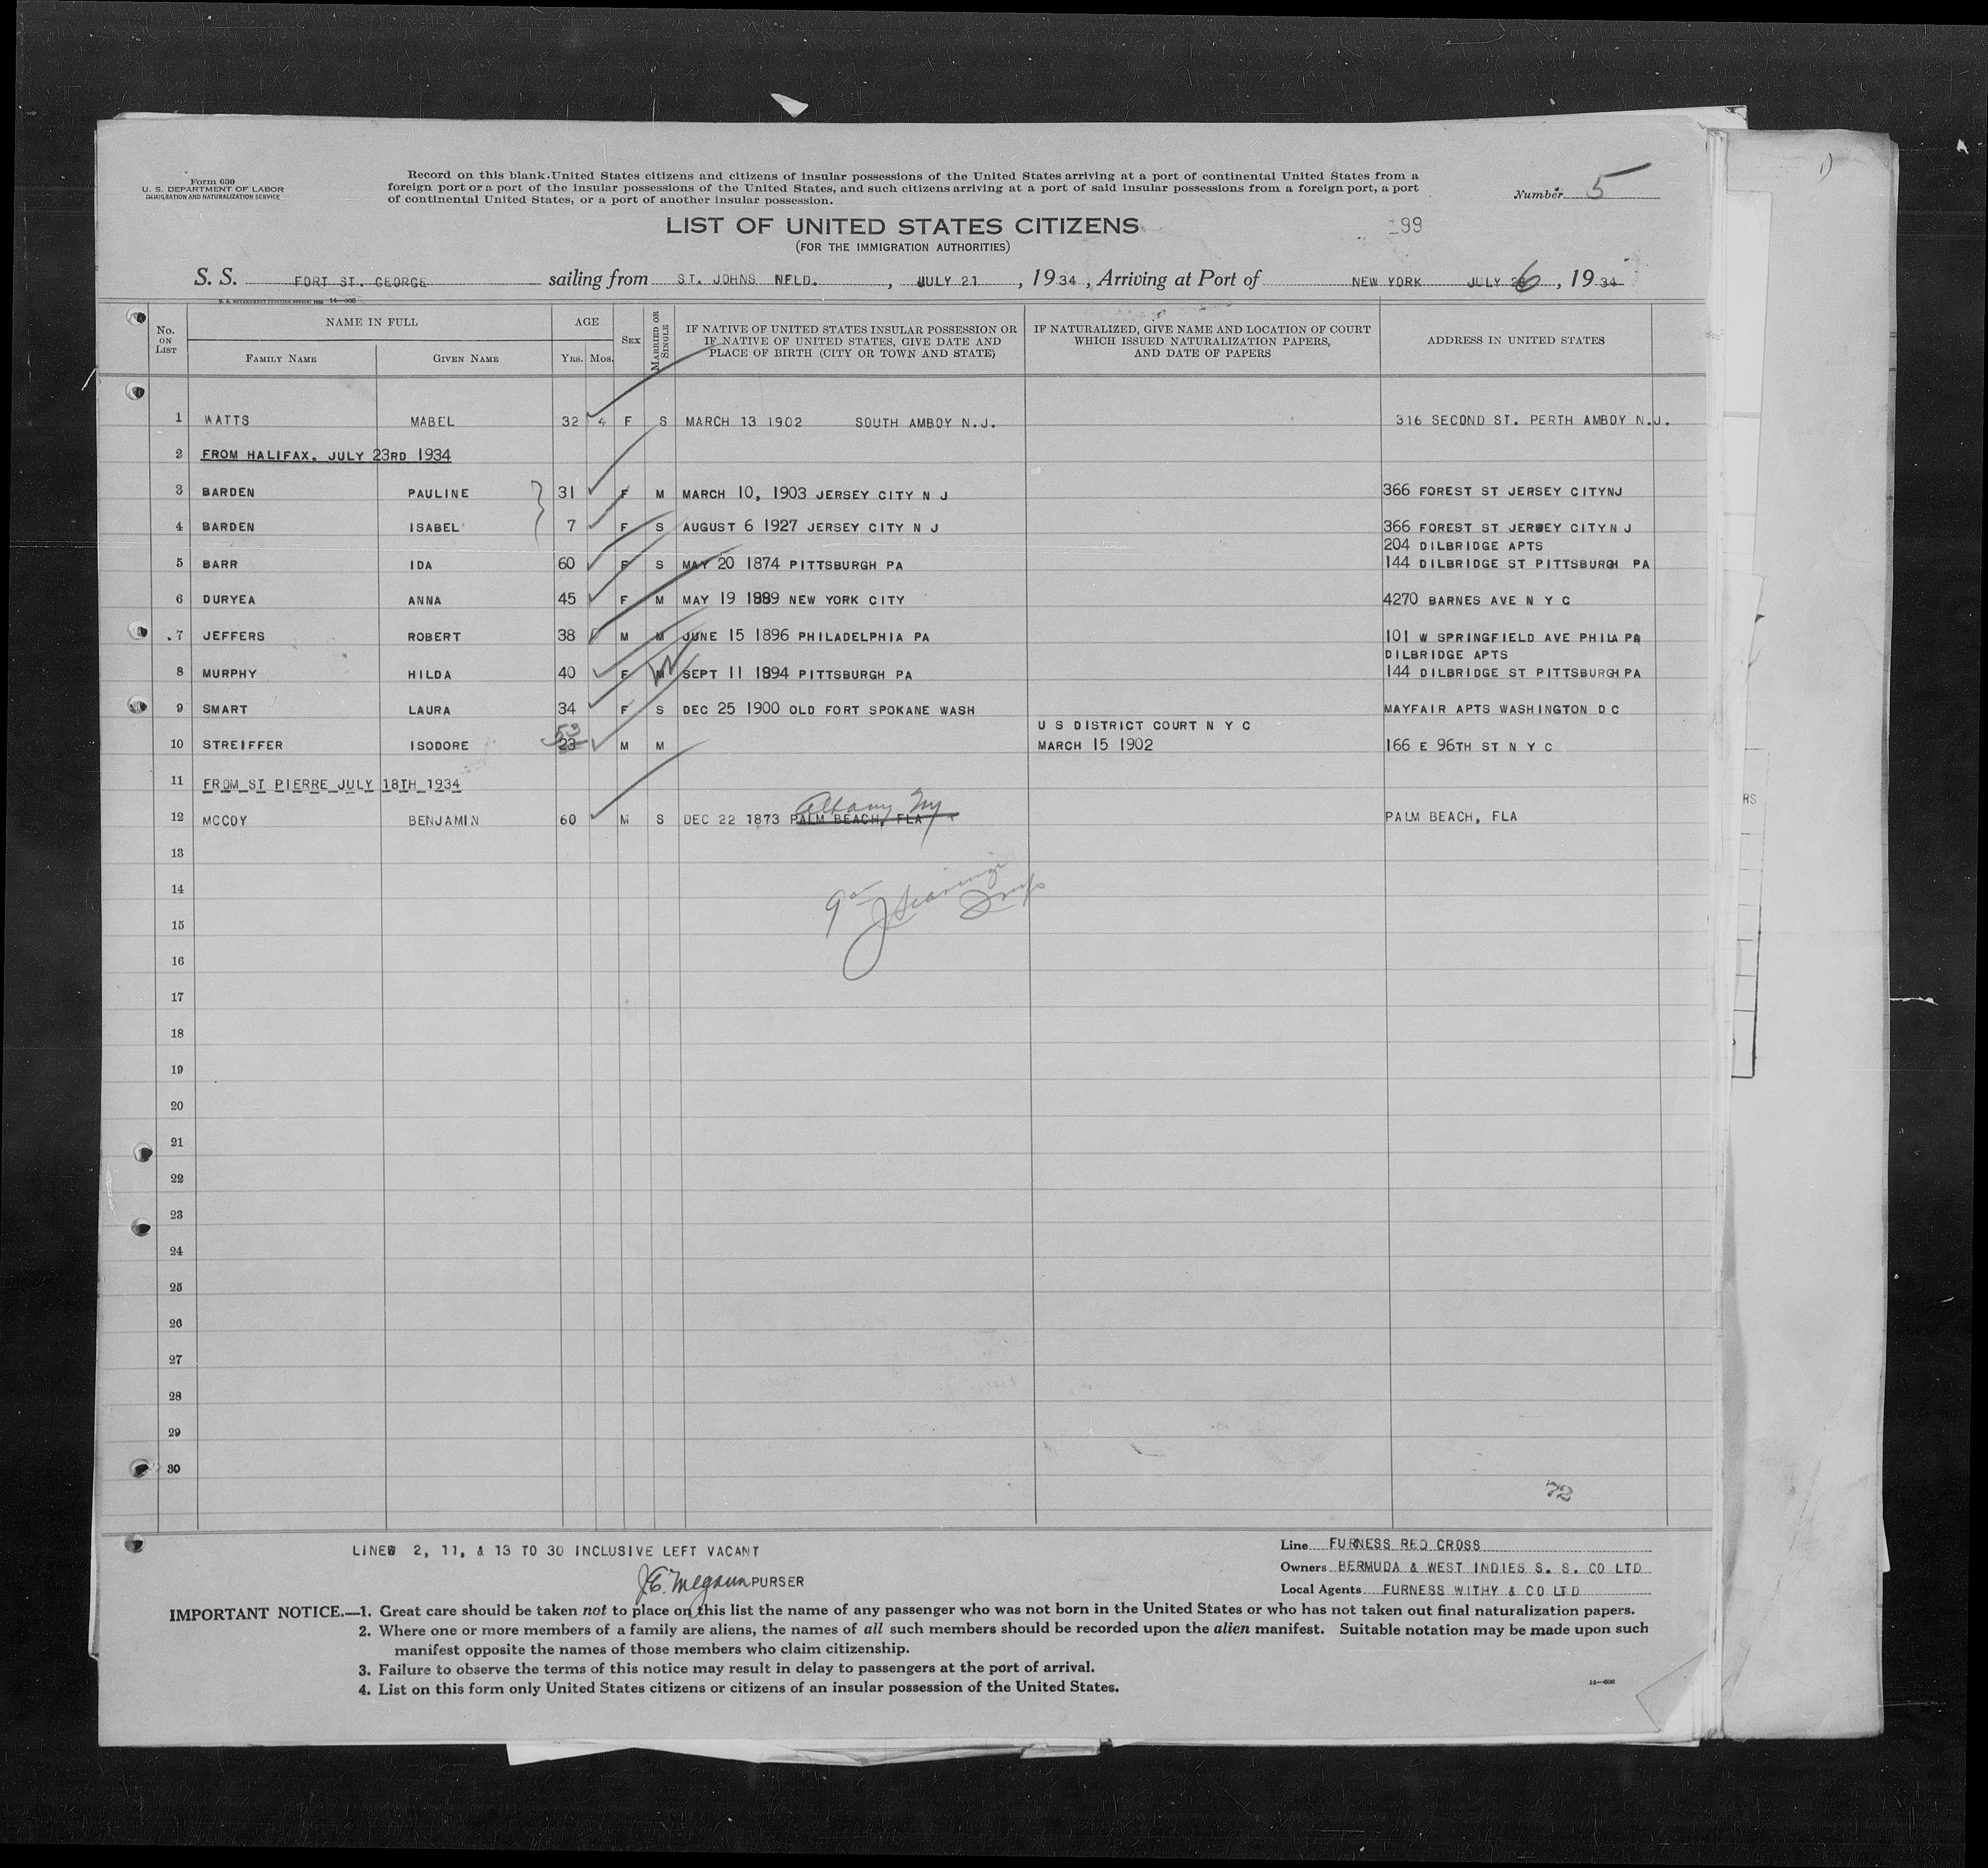 Form 630
U. S. DEPARTMENT OF LABOR
IMMIGRATION AND NATURALIZATION SERVICE
Record on this blank United States citizens and citizens of insular possessions of the United States arriving at a port of continental United States from a
foreign port or a port of the insular possessions of the United States, and such citizens arriving at a port of said insular possessions from a foreign port, a port
of continental United States, or a port of another insular possession.
Number 5
LIST OF UNITED STATES CITIZENS
(FOR THE IMMIGRATION AUTHORITIES)
99
S. S. FORT ST. GEORGE sailing from ST. JOHNS NFLD. , JULY 21 , 1934 , Arriving at Port of NEW YORK JULY 26 , 19 34
U. S. GOVERNMENT PRINTING OFFICE: 14—608
No. ON LIST
NAME IN FULL
FAMILY NAME GIVEN NAME
AGE
YRS. MOS.
SEX
MARRIED OR SINGLE
IF NATIVE OF UNITED STATES INSULAR POSSESSION OR
IF NATIVE OF UNITED STATES, GIVE DATE AND
PLACE OF BIRTH (CITY OR TOWN AND STATE)
IF NATURALIZED, GIVE NAME AND LOCATION OF COURT
WHICH ISSUED NATURALIZATION PAPERS,
AND DATE OF PAPERS
ADDRESS IN UNITED STATES
1 WATTS MABEL 32 4 F S MARCH 13 1902 SOUTH AMBOY N.J. 316 SECOND ST. PERTH AMBOY N.J.
2 FROM HALIFAX, JULY 23RD 1934
3 BARDEN PAULINE 31 F M MARCH 10, 1903 JERSEY CITY N J 366 FOREST ST JERSEY CITYNJ
4 BARDEN ISABEL 7 F S AUGUST 6 1927 JERSEY CITY N J 366 FOREST ST JERSEY CITY N J
204 DILBRIDGE APTS
5 BARR IDA 60 F S MAY 20 1874 PITTSBURGH PA 144 DILBRIDGE ST PITTSBURGH PA
6 DURYEA ANNA 45 F M MAY 19 1889 NEW YORK CITY 4270 BARNES AVE N Y C
7 JEFFERS ROBERT 38 M M JUNE 15 1896 PHILADELPHIA PA 101 W SPRINGFIELD AVE PHILA PA
DILBRIDGE APTS
8 MURPHY HILDA 40 F M W SEPT 11 1894 PITTSBURGH PA 144 DILBRIDGE ST PITTSBURGH PA
9 SMART LAURA 34 F S DEC 25 1900 OLD FORT SPOKANE WASH MAYFAIR APTS WASHINGTON D C
53 U S DISTRICT COURT N Y C
10 STREIFFER ISODORE 23 M M MARCH 15 1902 166 E 96TH ST N Y C
11 FROM ST PIERRE JULY 18TH 1934
Albany Ny
12 MCCOY BENJAMIN 60 M S DEC 22 1873 PALM BEACH, FLA PALM BEACH, FLA
13
14
15
16
17
18
19
20
21
22
23
24
25
26
27
28
29
30
72
LINES 2, 11, & 13 TO 30 INCLUSIVE LEFT VACANT
PURSER
Line FURNESS RED CROSS
Owners BERMUDA & WEST INDIES S. S. CO LTD
Local Agents FURNESS WITHY & CO LTD
IMPORTANT NOTICE.—1. Great care should be taken not to place on this list the name of any passenger who was not born in the United States or who has not taken out final naturalization papers.
2. Where one or more members of a family are aliens, the names of all such members should be recorded upon the alien manifest. Suitable notation may be made upon such
manifest opposite the names of those members who claim citizenship.
3. Failure to observe the terms of this notice may result in delay to passengers at the port of arrival.
4. List on this form only United States citizens or citizens of an insular possession of the United States.
14—608
RS